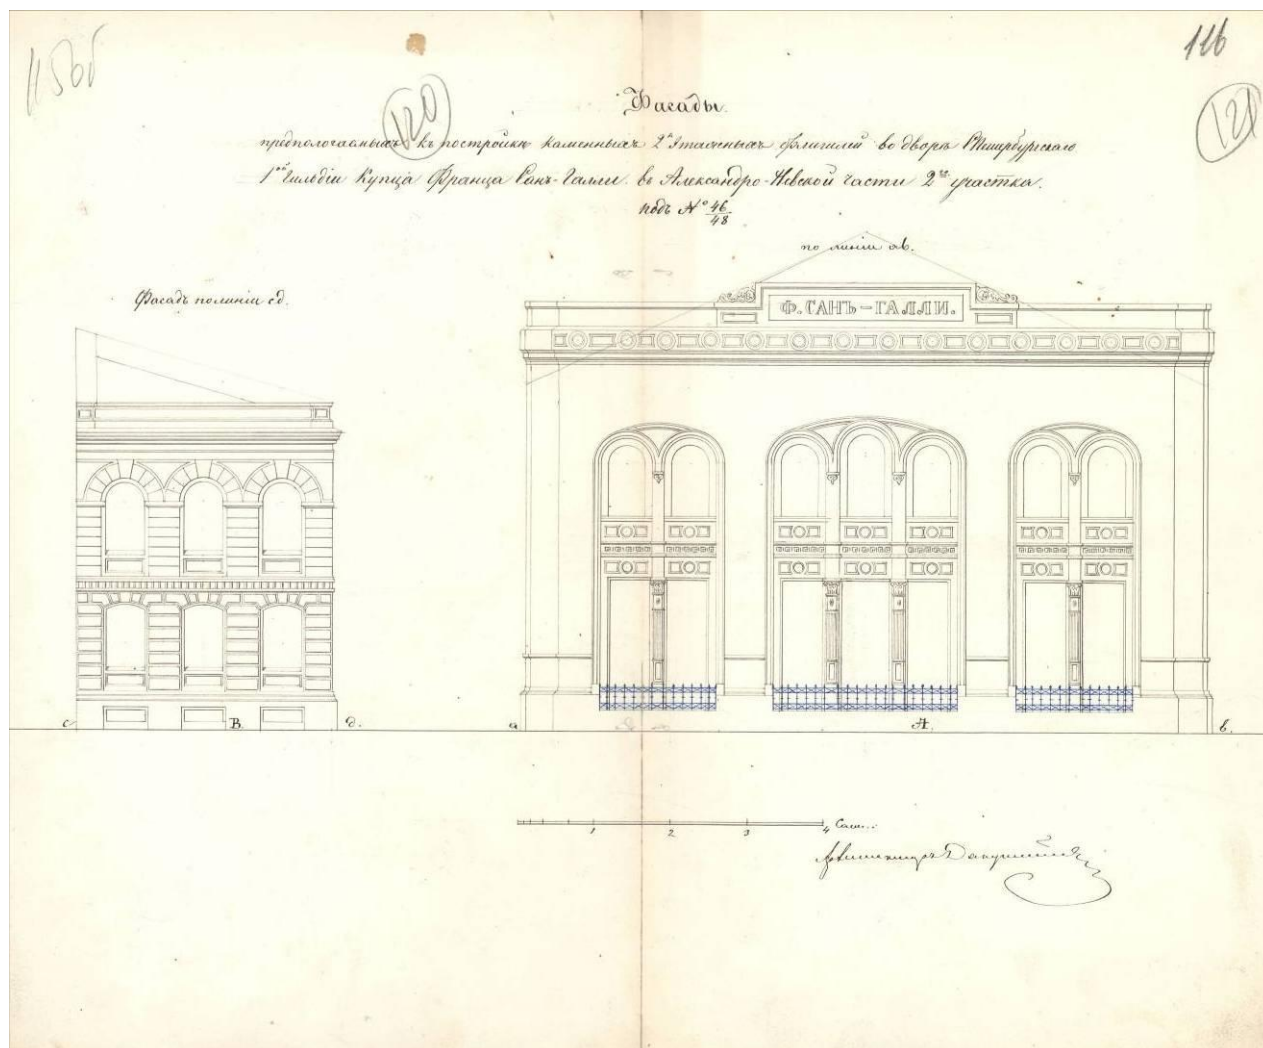 116
120
121
Фасады.
предпологаемыхъ къ постройкѣ каменныхъ 2хъ Этажныхъ флигилей во дворѣ СПетербургскаго
1ой Гильдіи Купца Франца Санъ-Галли. въ Александро-Невской части 2го участка.
подъ № 46/48
по линіи ав.
Фасадъ по линіи сд.
Ф. САНЪ-ГАЛЛИ.
с В. д. а А. в.
1 2 3 4 Саж.
Архитекторъ